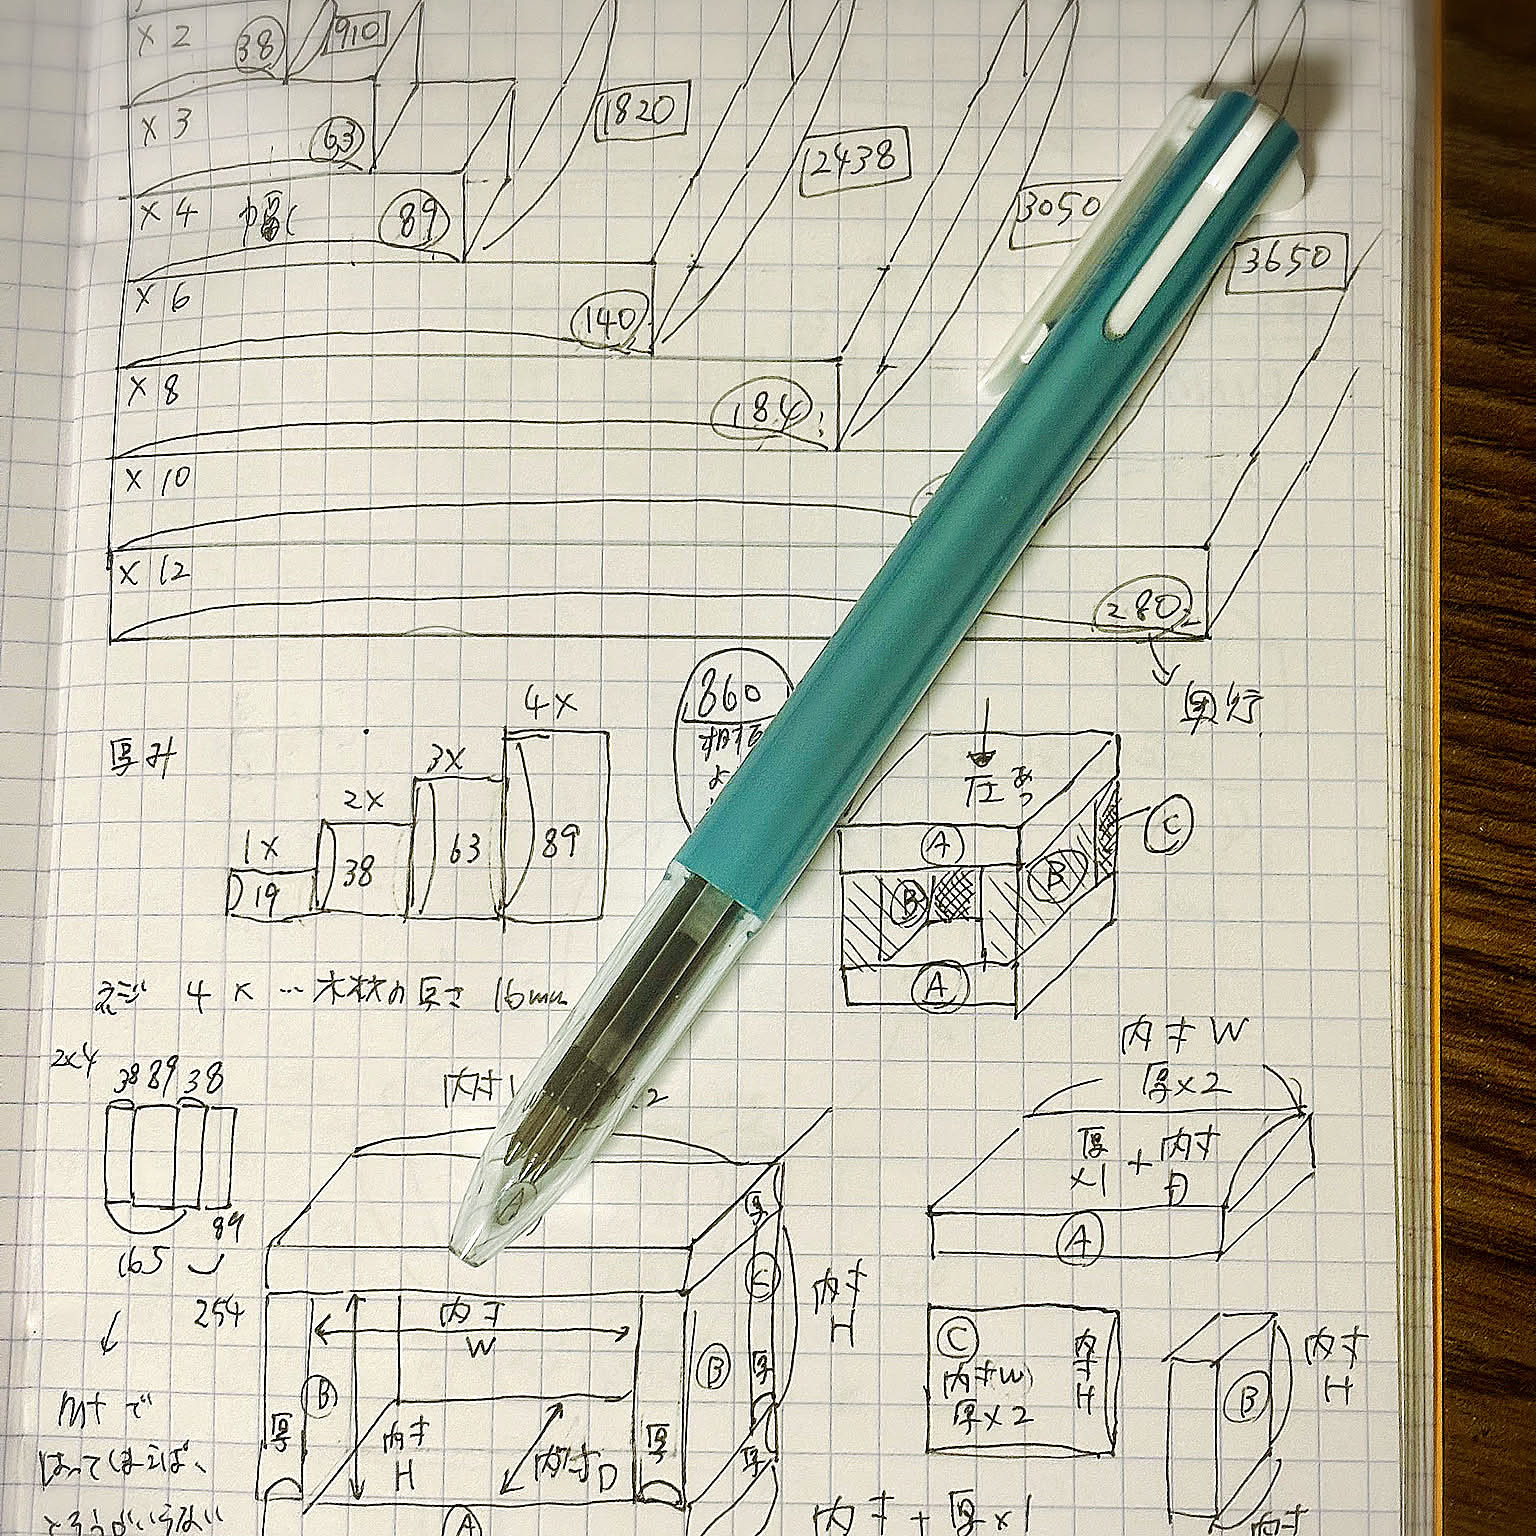 × 2 38 910
× 3 63 1820
× 4 幅 89 2438
× 6 140 3050
× 8 184 3650
× 10
× 12 280
奥行
厚み
1× 2× 3× 4×
19 38 63 89
860
圧 あつ
A
B B C
A
ネジ 4 × … 木材の厚さ 16mm
2×4
38 89 38
89
165
254
内寸W
厚×2
厚×1 + 内寸D
A
内寸
W
B 厚
内寸
H
内寸D
厚
B
厚
C
厚
厚
内寸
H
A
C
内寸W
厚×2
内寸H
B
内寸
H
内寸
内寸 + 厚×1